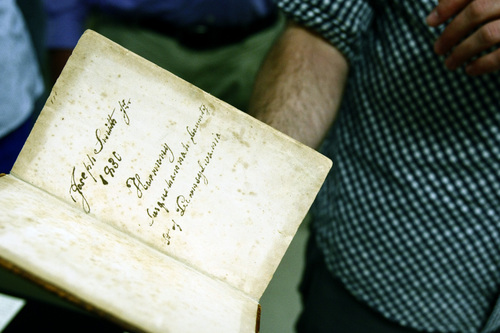 Joseph Smith Jr.
1830
Harmony
Susquehannah County
of Pennsylvania